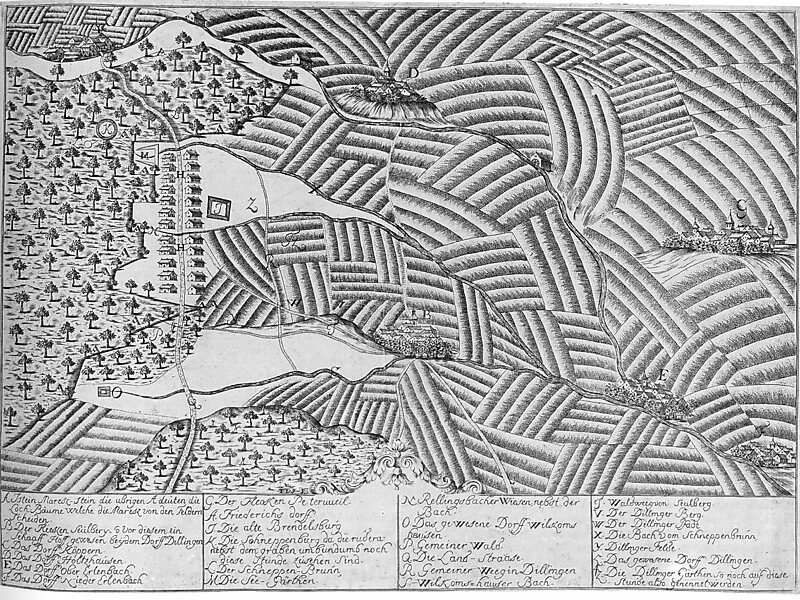 A. Stein Marest-Stein die übrigen A deuten die
och Bäume welche die Marest von den Feldern
scheiden
B. Der Flecken Seülberg
Schaaf Hoff gewesen bey dem Dorff Dillingen
C. Das Dorff Köppern
D. Das Dorff Holtzhausen
E. Das Dorff Ober Erlenbach
F. Das Dorff Nieder Erlenbach
G. Der Flecken Peterweil
H. Friederichs dorff
J. Die alte Brendelsburg
K. Die Schneppenburg da die rudera
nebst dem graben und umb noch
diese Stunde zusehen sind.
L. Der Schneppen-Brunn
M. Die See-Gärthen
N. Rellingsbacher Wiesen nebst der
Bach
O. Das gewesene Dorff Wilkoms
hausen
P. Gemeiner Wald
Q. Die Land-Straase
R. Gemeiner Weeg in Dillingen
S. Wilkomshäuser Bach
T. Waldweeg von Seulberg
V. Der Dillinger Berg
W. Der Dillinger Pfadt
X. Die Bach vom Schneppenbrunn
Y. Dillinger Felde
Z. Das gewesene Dorff Dillingen
Die Dillinger Gärthen so noch auf diese
Stunde also genennet werden